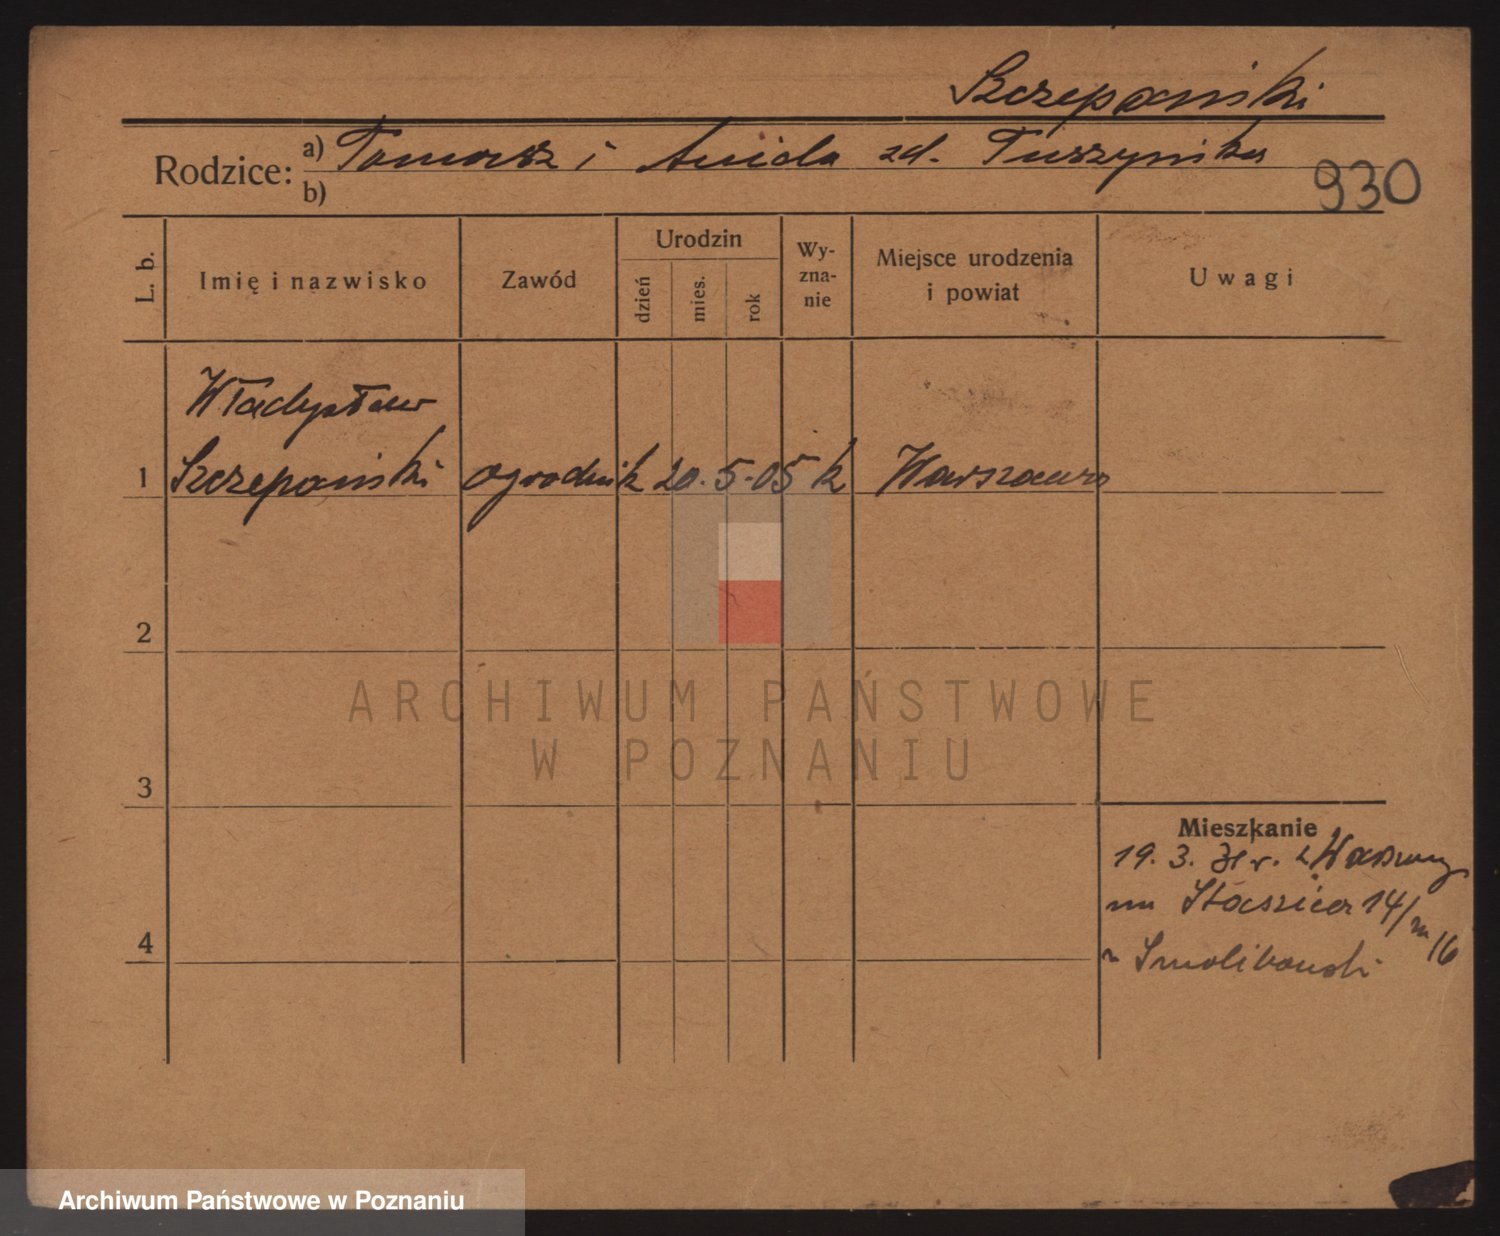 Szczepański
Rodzice: a) Tomasz i Anida zd. Tuszyńska
b)
930
L. b.
Imię i nazwisko
Zawód
Urodzin
dzień
mies.
rok
Wy-
zna-
nie
Miejsce urodzenia
i powiat
Uwagi
Władysław
1 Szczepański ogrodnik 20. 5. 05 k Warszawa
2
ARCHIWUM PAŃSTWOWE
W POZNANIU
3
Mieszkanie
19. 3. 31 r. z Warszawy
na Staszica 14/m 16
Smolikowski
4
Archiwum Państwowe w Poznaniu